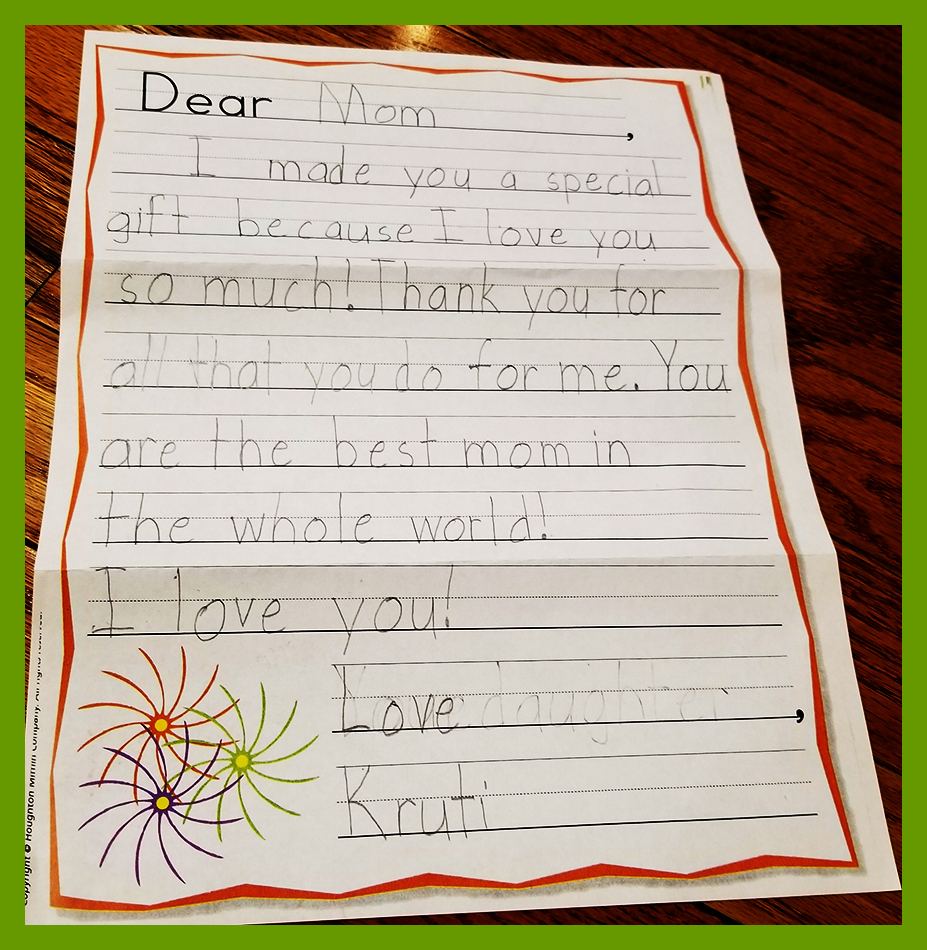 Dear Mom,
I made you a special
gift because I love you
so much! Thank you for
all that you do for me. You
are the best mom in
the whole world!
I love you!
Love daughter,
Kruti
Copyright © Houghton Mifflin Company. All rights reserved.